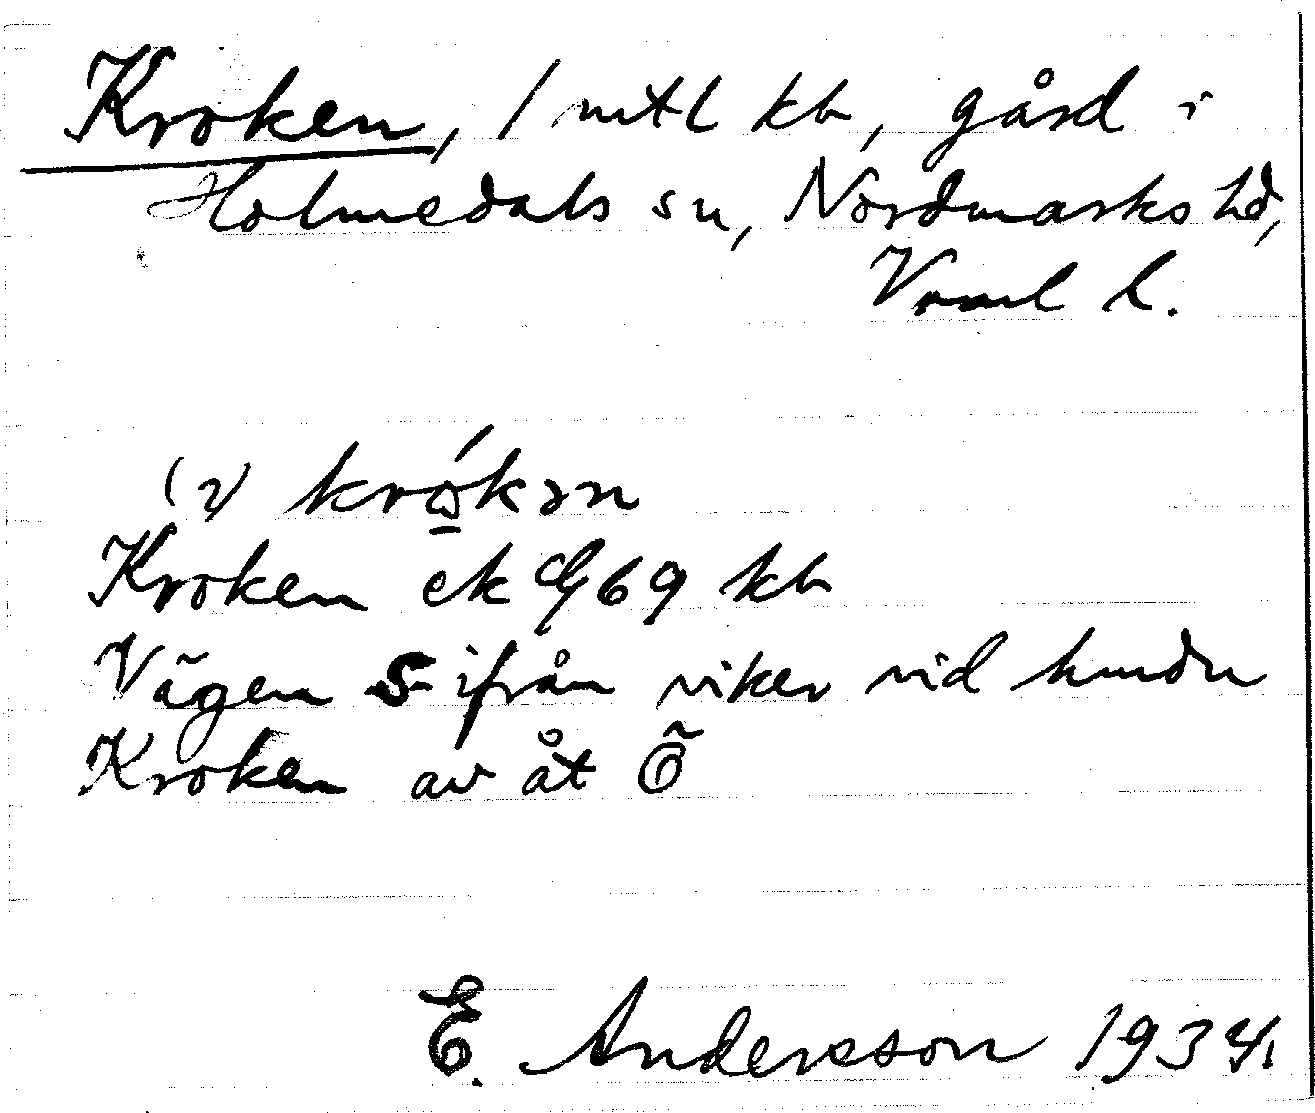 Kroken, 1 mtl kb, gård i
Holmedals sn, Nordmarks hd,
Vrml l.
(i) krókən
Kroken ek G69 kb
Vägen S ifrån viker vid
Kroken av åt Ö
E. Andersson 1934.